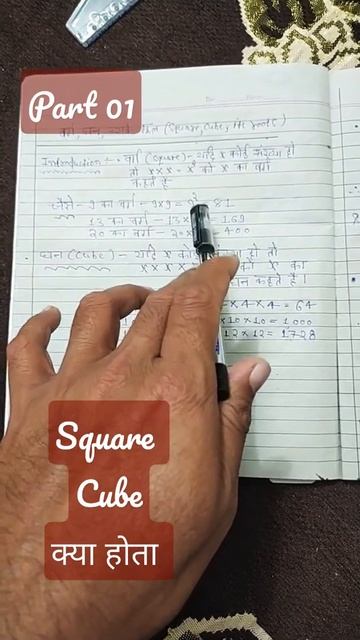 Part 01
वर्ग, घन, (Square, Cube, roots)
Introduction :- वर्ग (Square) - यदि x कोई संख्या हो
तो x × x = x² को x का वर्ग
कहते हैं
जैसे - 9 का वर्ग - 9×9 = 9² 81
13 का वर्ग - 13× 169
20 का वर्ग - 2 400
घन (Cube) - यदि x को हो तो
x × x × को x का
घन कहते हैं।
×4×4 = 64
×10×10 = 1000
12×12 = 1728
Square
Cube
क्या होता